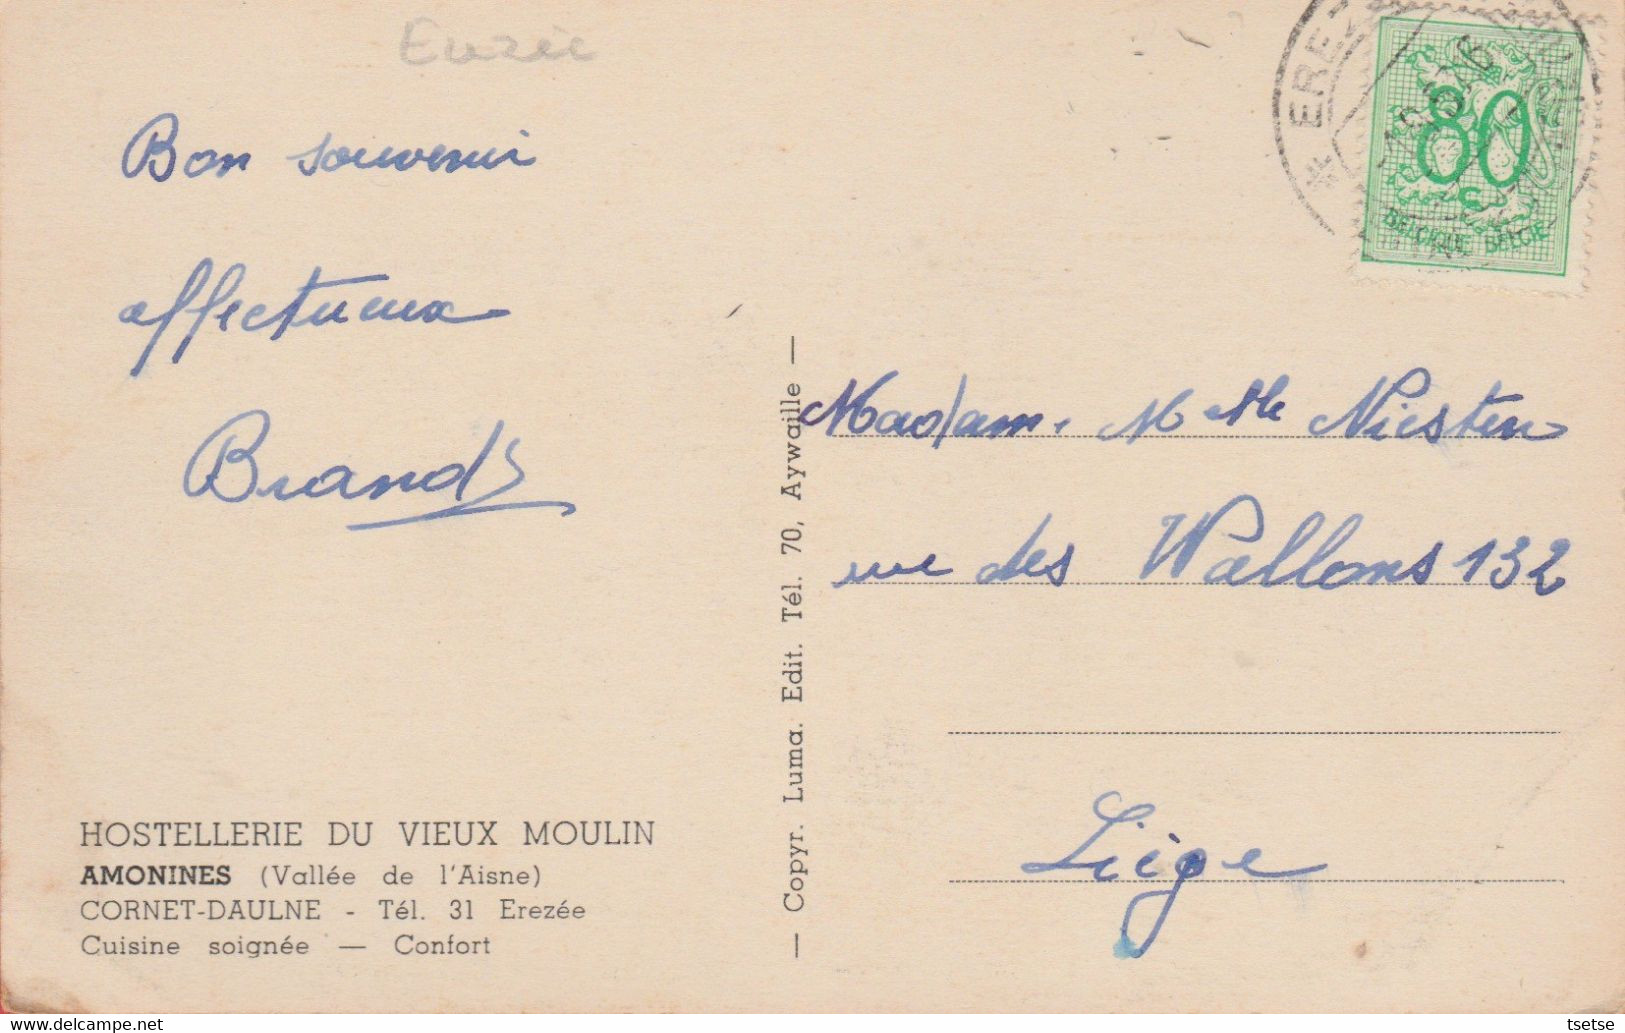 Erezée
Bon souvenir
affectueux
Brands
HOSTELLERIE DU VIEUX MOULIN
AMONINES (Vallée de l'Aisne)
CORNET-DAULNE - Tél. 31 Erezée
Cuisine soignée — Confort
— Copyr. Luma. Edit. Tél. 70, Aywaille —
* EREZ
80
BELGIQUE BELGIE
Madam. Melle Niesten
rue des Wallons 132
Liège
tsetse